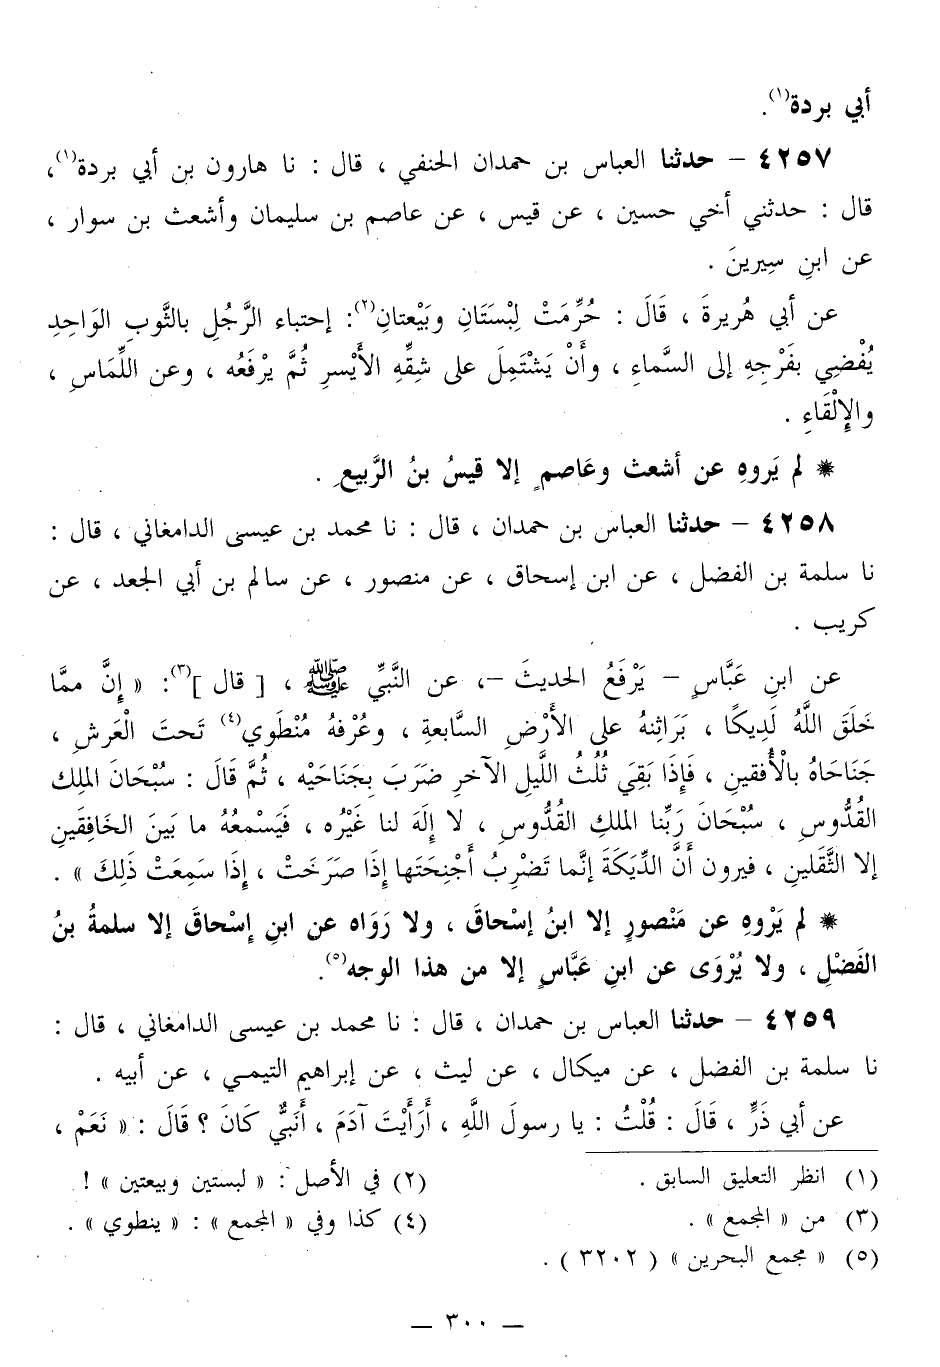 أبي بردة(١).
٤٢٥٧ - حدثنا العباس بن حمدان الحنفي ، قال : نا هارون بن أبي بردة(١)،
قال : حدثني أخي حسين ، عن قيس ، عن عاصم بن سليمان وأشعث بن سوار ،
عن ابنِ سِيرينَ .
عن أبي هُريرةَ ، قَالَ : حُرِّمَتْ لِبْسَتَانِ وبَيْعتانِ(٢): إحتباء الرَّجُلِ بالثَّوبِ الوَاحِدِ
يُفْضِي بفَرْجِهِ إلى السَّماءِ ، وأَنْ يَشْتَمِلَ على شِقِّهِ الأَيْسرِ ثُمَّ يرْفَعُه ، وعن اللِّمَاسِ ،
والإِلْقَاءِ .
* لم يَروهِ عن أشعث وعَاصمٍ إلا قيسُ بنُ الرَّبيعِ .
٤٢٥٨ - حدثنا العباس بن حمدان ، قال : نا محمد بن عيسى الدامغاني ، قال :
نا سلمة بن الفضل ، عن ابن إسحاق ، عن منصور ، عن سالم بن أبي الجعد ، عن
كريب .
عن ابنِ عَبَّاسٍ - يَرْفَعُ الحديثَ -، عن النَّبيِّ ﷺ ، [ قال ](٣): « إِنَّ ممَّا
خَلَقَ اللَّهُ لَدِيكًا ، بَرَاثِنهُ على الأَرْضِ السَّابعةِ ، وعُرْفهُ مُنْطَوي(٤) تَحتَ الْعَرشِ ،
جَنَاحَاهُ بالْأُفقينِ ، فَإِذَا بَقِيَ ثُلُثُ اللَّيلِ الآخرِ ضَرَبَ بِجَنَاحَيْه ، ثُمَّ قَالَ : سُبْحَانَ الملِك
القُدُّوسِ ، سُبْحَانَ رَبِّنا الملكِ القُدُّوسِ ، لا إِلَهَ لنا غَيْرُه ، فَيَسْمعُهُ ما بَينَ الخَافِقَينِ
إلا الثَّقَلينِ ، فيرون أَنَّ الدِّيَكَةَ إنَّما تَضْرِبُ أَجْنِحَتَها إذَا صَرَخَتْ ، إِذَا سَمِعَتْ ذَلِكَ » .
* لم يَرْوهِ عن مَنْصورٍ إلا ابنُ إسْحاقَ ، ولا رَوَاه عن ابنِ إِسْحاقَ إلا سلمةُ بنُ
الفَضْلِ ، ولا يُرْوَى عن ابنِ عَبَّاسٍ إلا من هذا الوجه(٥).
٤٢٥٩ - حدثنا العباس بن حمدان ، قال : نا محمد بن عيسى الدامغاني ، قال :
نا سلمة بن الفضل ، عن ميكال ، عن ليث ، عن إبراهيم التيمي ، عن أبيه .
عن أبي ذَرٍّ ، قَالَ : قُلْتُ : يا رسولَ اللَّهِ ، أَرَأَيْتَ آدَمَ ، أَنَبيٌّ كَانَ ؟ قَالَ : « نَعَمْ ،
(١) انظر التعليق السابق .
(٢) في الأصل : « لبستين وبيعتين » !
(٣) من « المجمع » .
(٤) كذا وفي « المجمع » : « ينطوي » .
(٥) « مجمع البحرين » ( ٣٢٠٢ ) .
— ٣٠٠ —